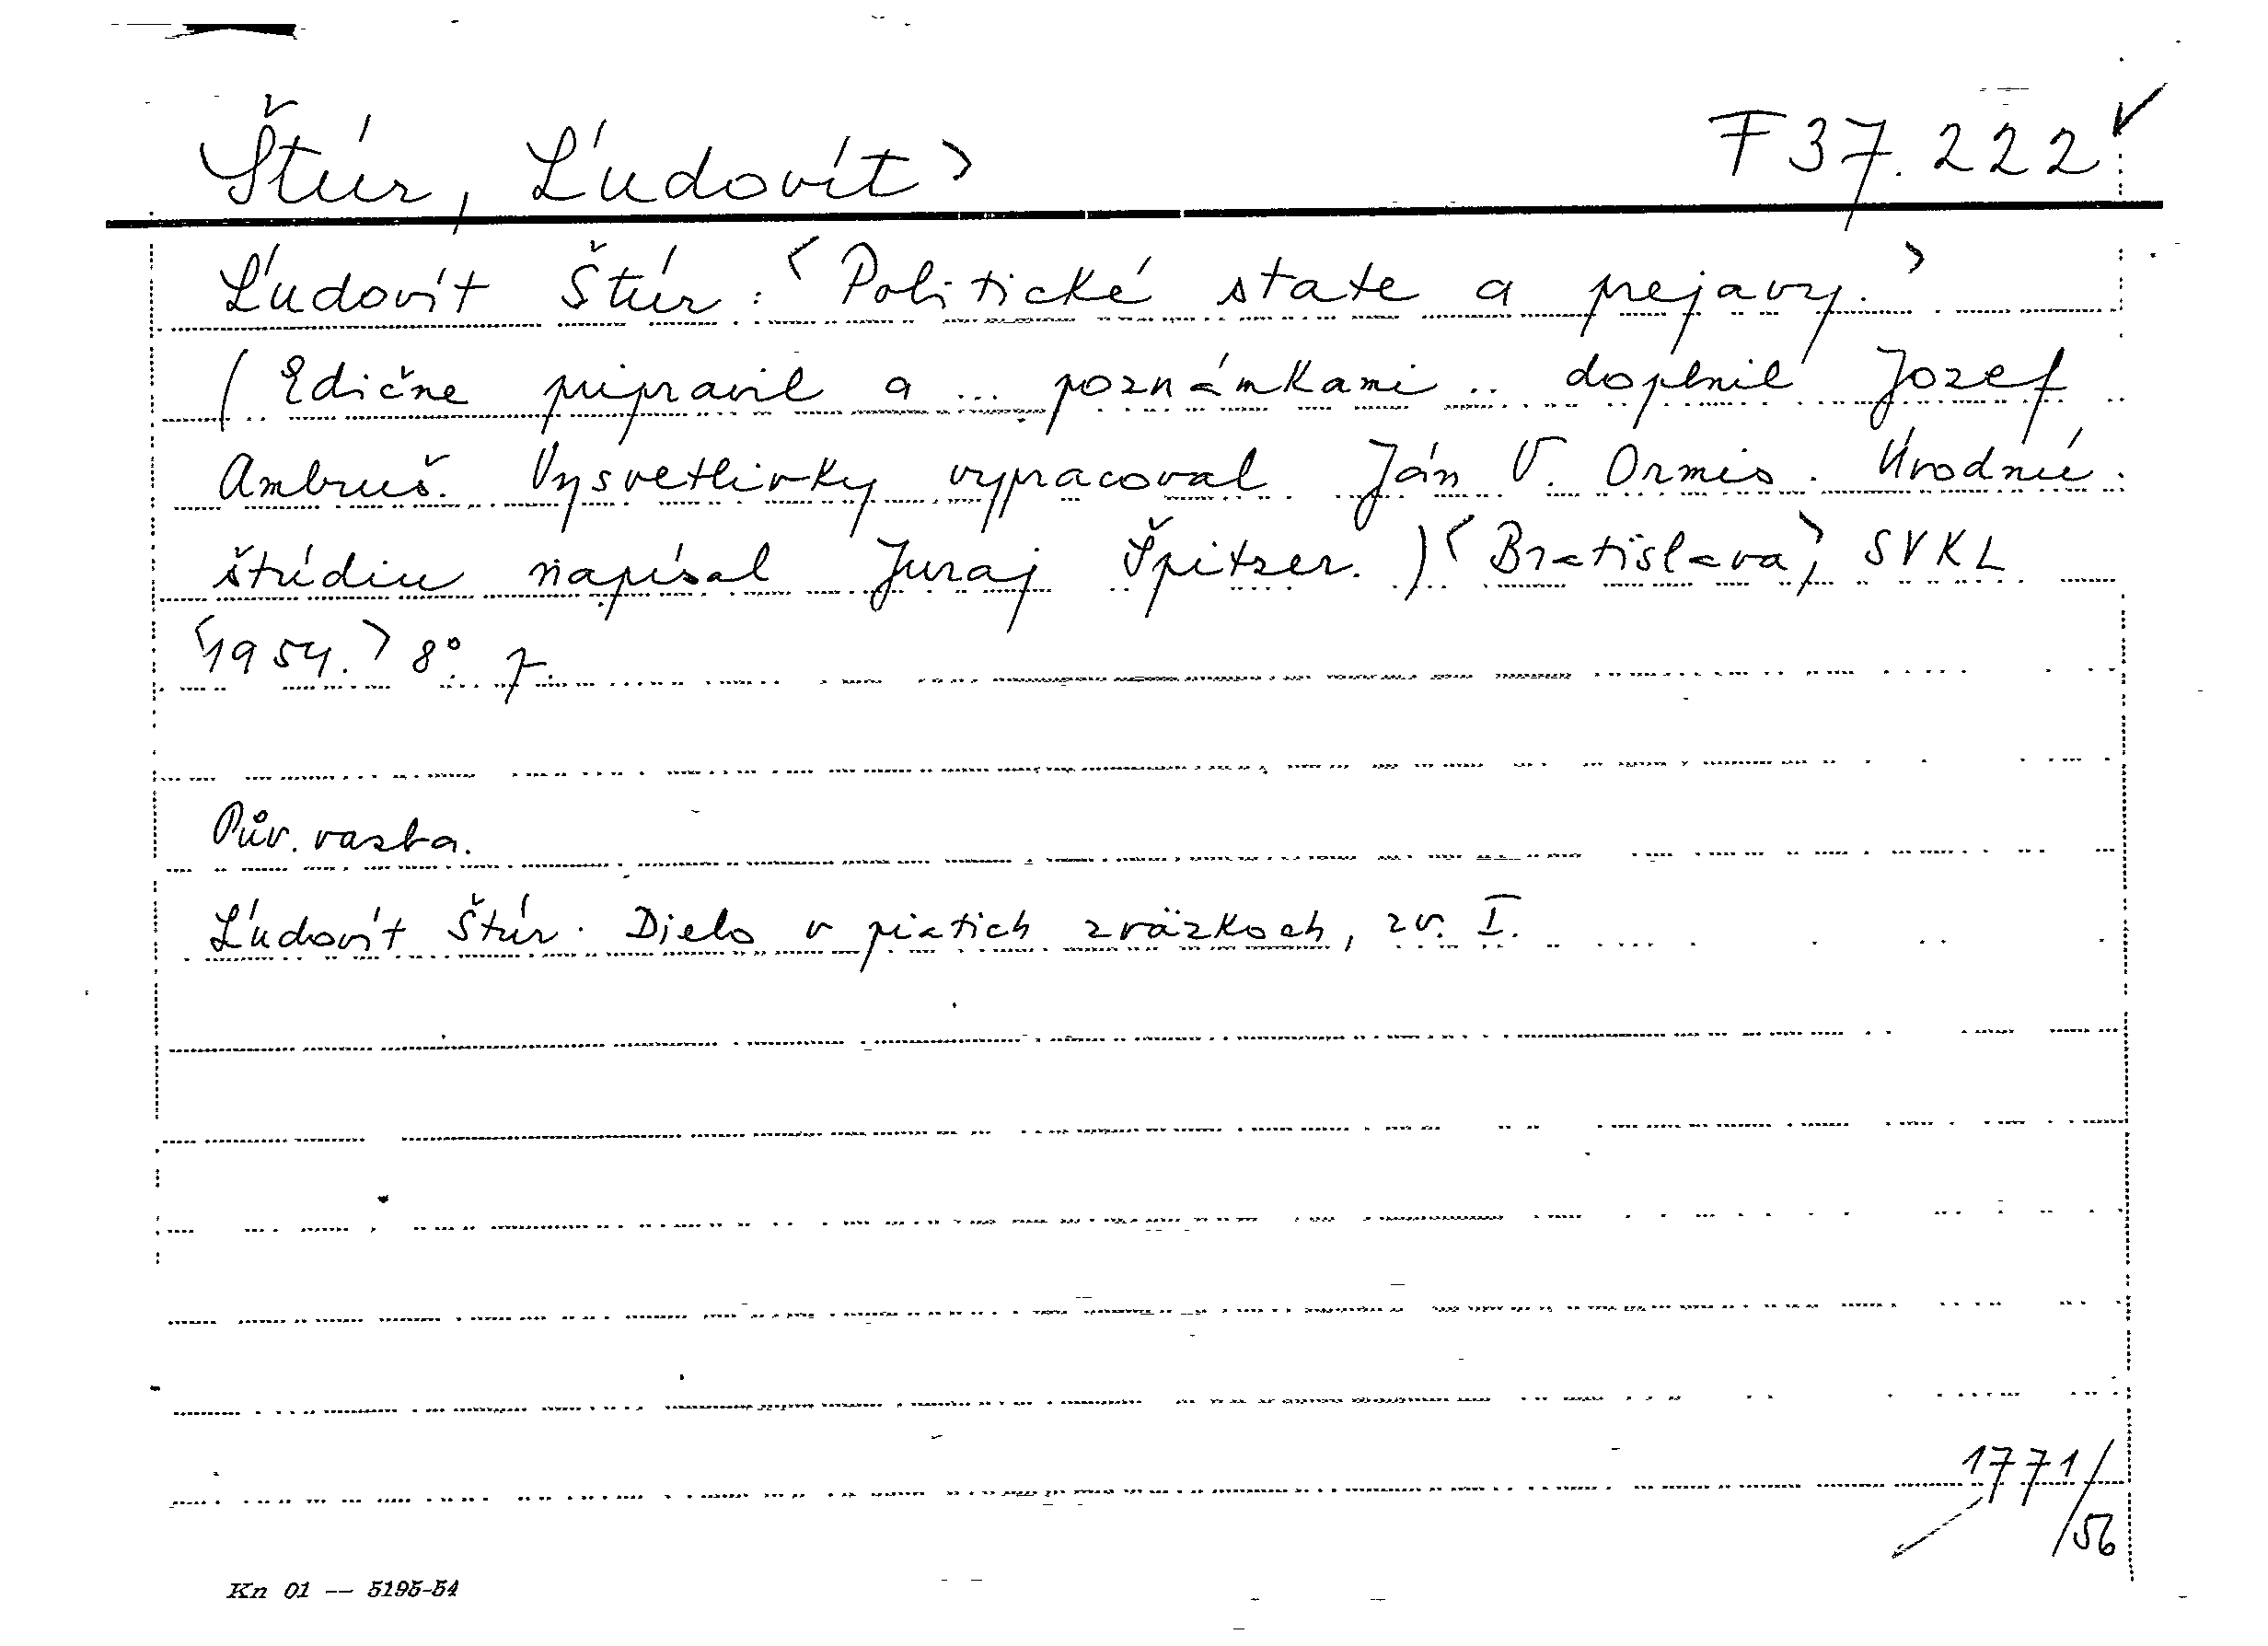 Štúr, Ľudovít> F 37.222
Ľudovít Štúr: <Politické state a prejavy.>
(Edične pripravil a ... poznámkami .. doplnil Jozef
Ambruš. Vysvetlivky vypracoval Ján V. Ormis. Úvodnú
štúdiu napísal Juraj Špitzer.) <Bratislava>, SVKL
<1954.> 8°.
Pův. vazba.
Ľudovít Štúr. Dielo v piatich zväzkoch, zv. I.
1771/
/56
Kn 01 — 5195-54